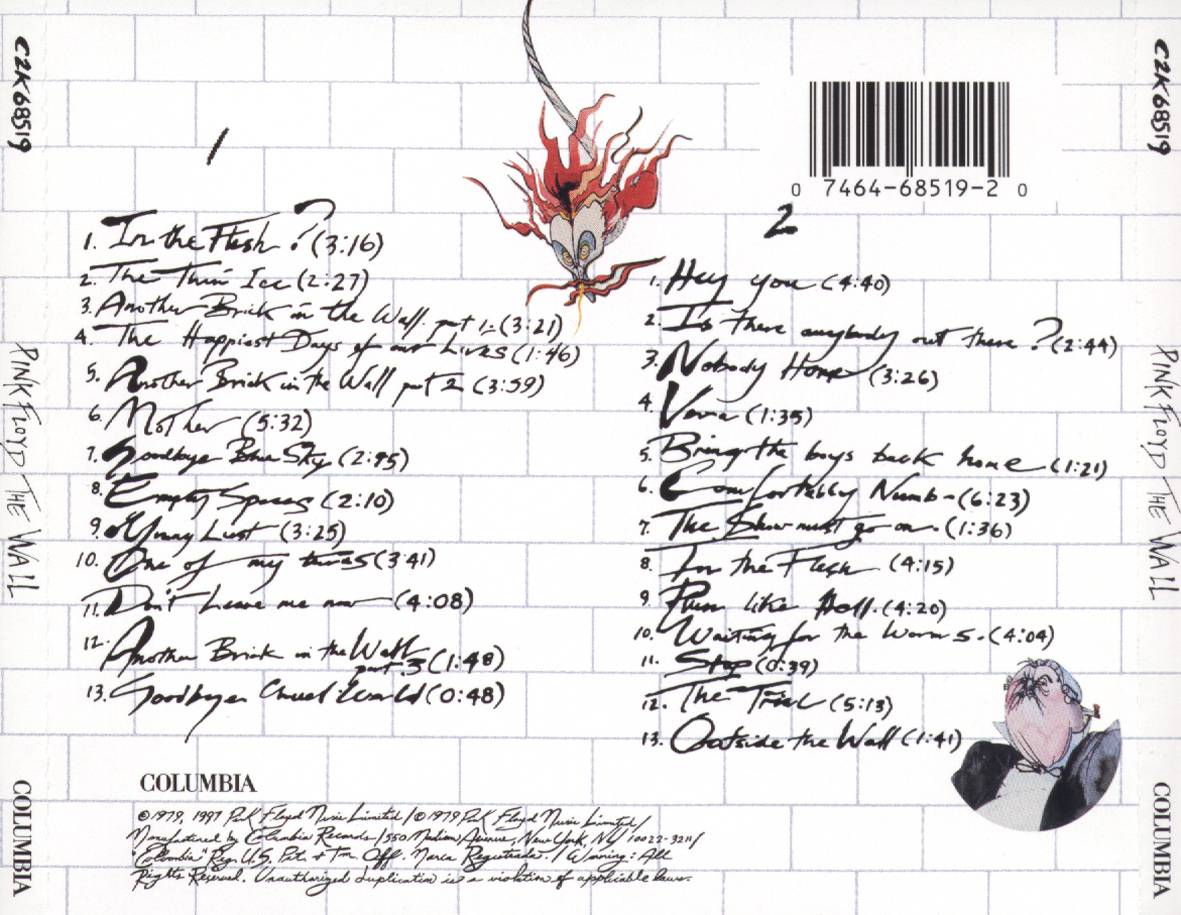 C2K68519
PINK FLOYD THE WALL
COLUMBIA
1
1. In the Flesh? (3:16)
2. The Thin Ice (2:27)
3. Another Brick in the Wall part 1 (3:21)
4. The Happiest Days of our Lives (1:46)
5. Another Brick in the Wall part 2 (3:59)
6. Mother (5:32)
7. Goodbye Blue Sky (2:45)
8. Empty Spaces (2:10)
9. Young Lust (3:25)
10. One of my turns (3:41)
11. Don't Leave me now (4:08)
12. Another Brick in the Wall
part 3 (1:48)
13. Goodbye Cruel World (0:48)
0 7464-68519-2 0
2
1. Hey you (4:40)
2. Is there anybody out there? (2:44)
3. Nobody Home (3:26)
4. Vera (1:35)
5. Bring the boys back home (1:21)
6. Comfortably Numb - (6:23)
7. The Show must go on. (1:36)
8. In the Flesh (4:15)
9. Run like Hell. (4:20)
10. Waiting for the Worms. (4:04)
11. Stop (0:39)
12. The Trial (5:13)
13. Outside the Wall (1:41)
COLUMBIA
©1979, 1997 Pink Floyd Music Limited/℗1979 Pink Floyd Music Limited/
Manufactured by Columbia Records/550 Madison Avenue, New York, NY 10022-3211/
"Columbia" Reg. U.S. Pat. + Tm. Off. Marca Registrada./Warning: All
Rights Reserved. Unauthorized duplication is a violation of applicable laws.
C2K68519
PINK FLOYD THE WALL
COLUMBIA